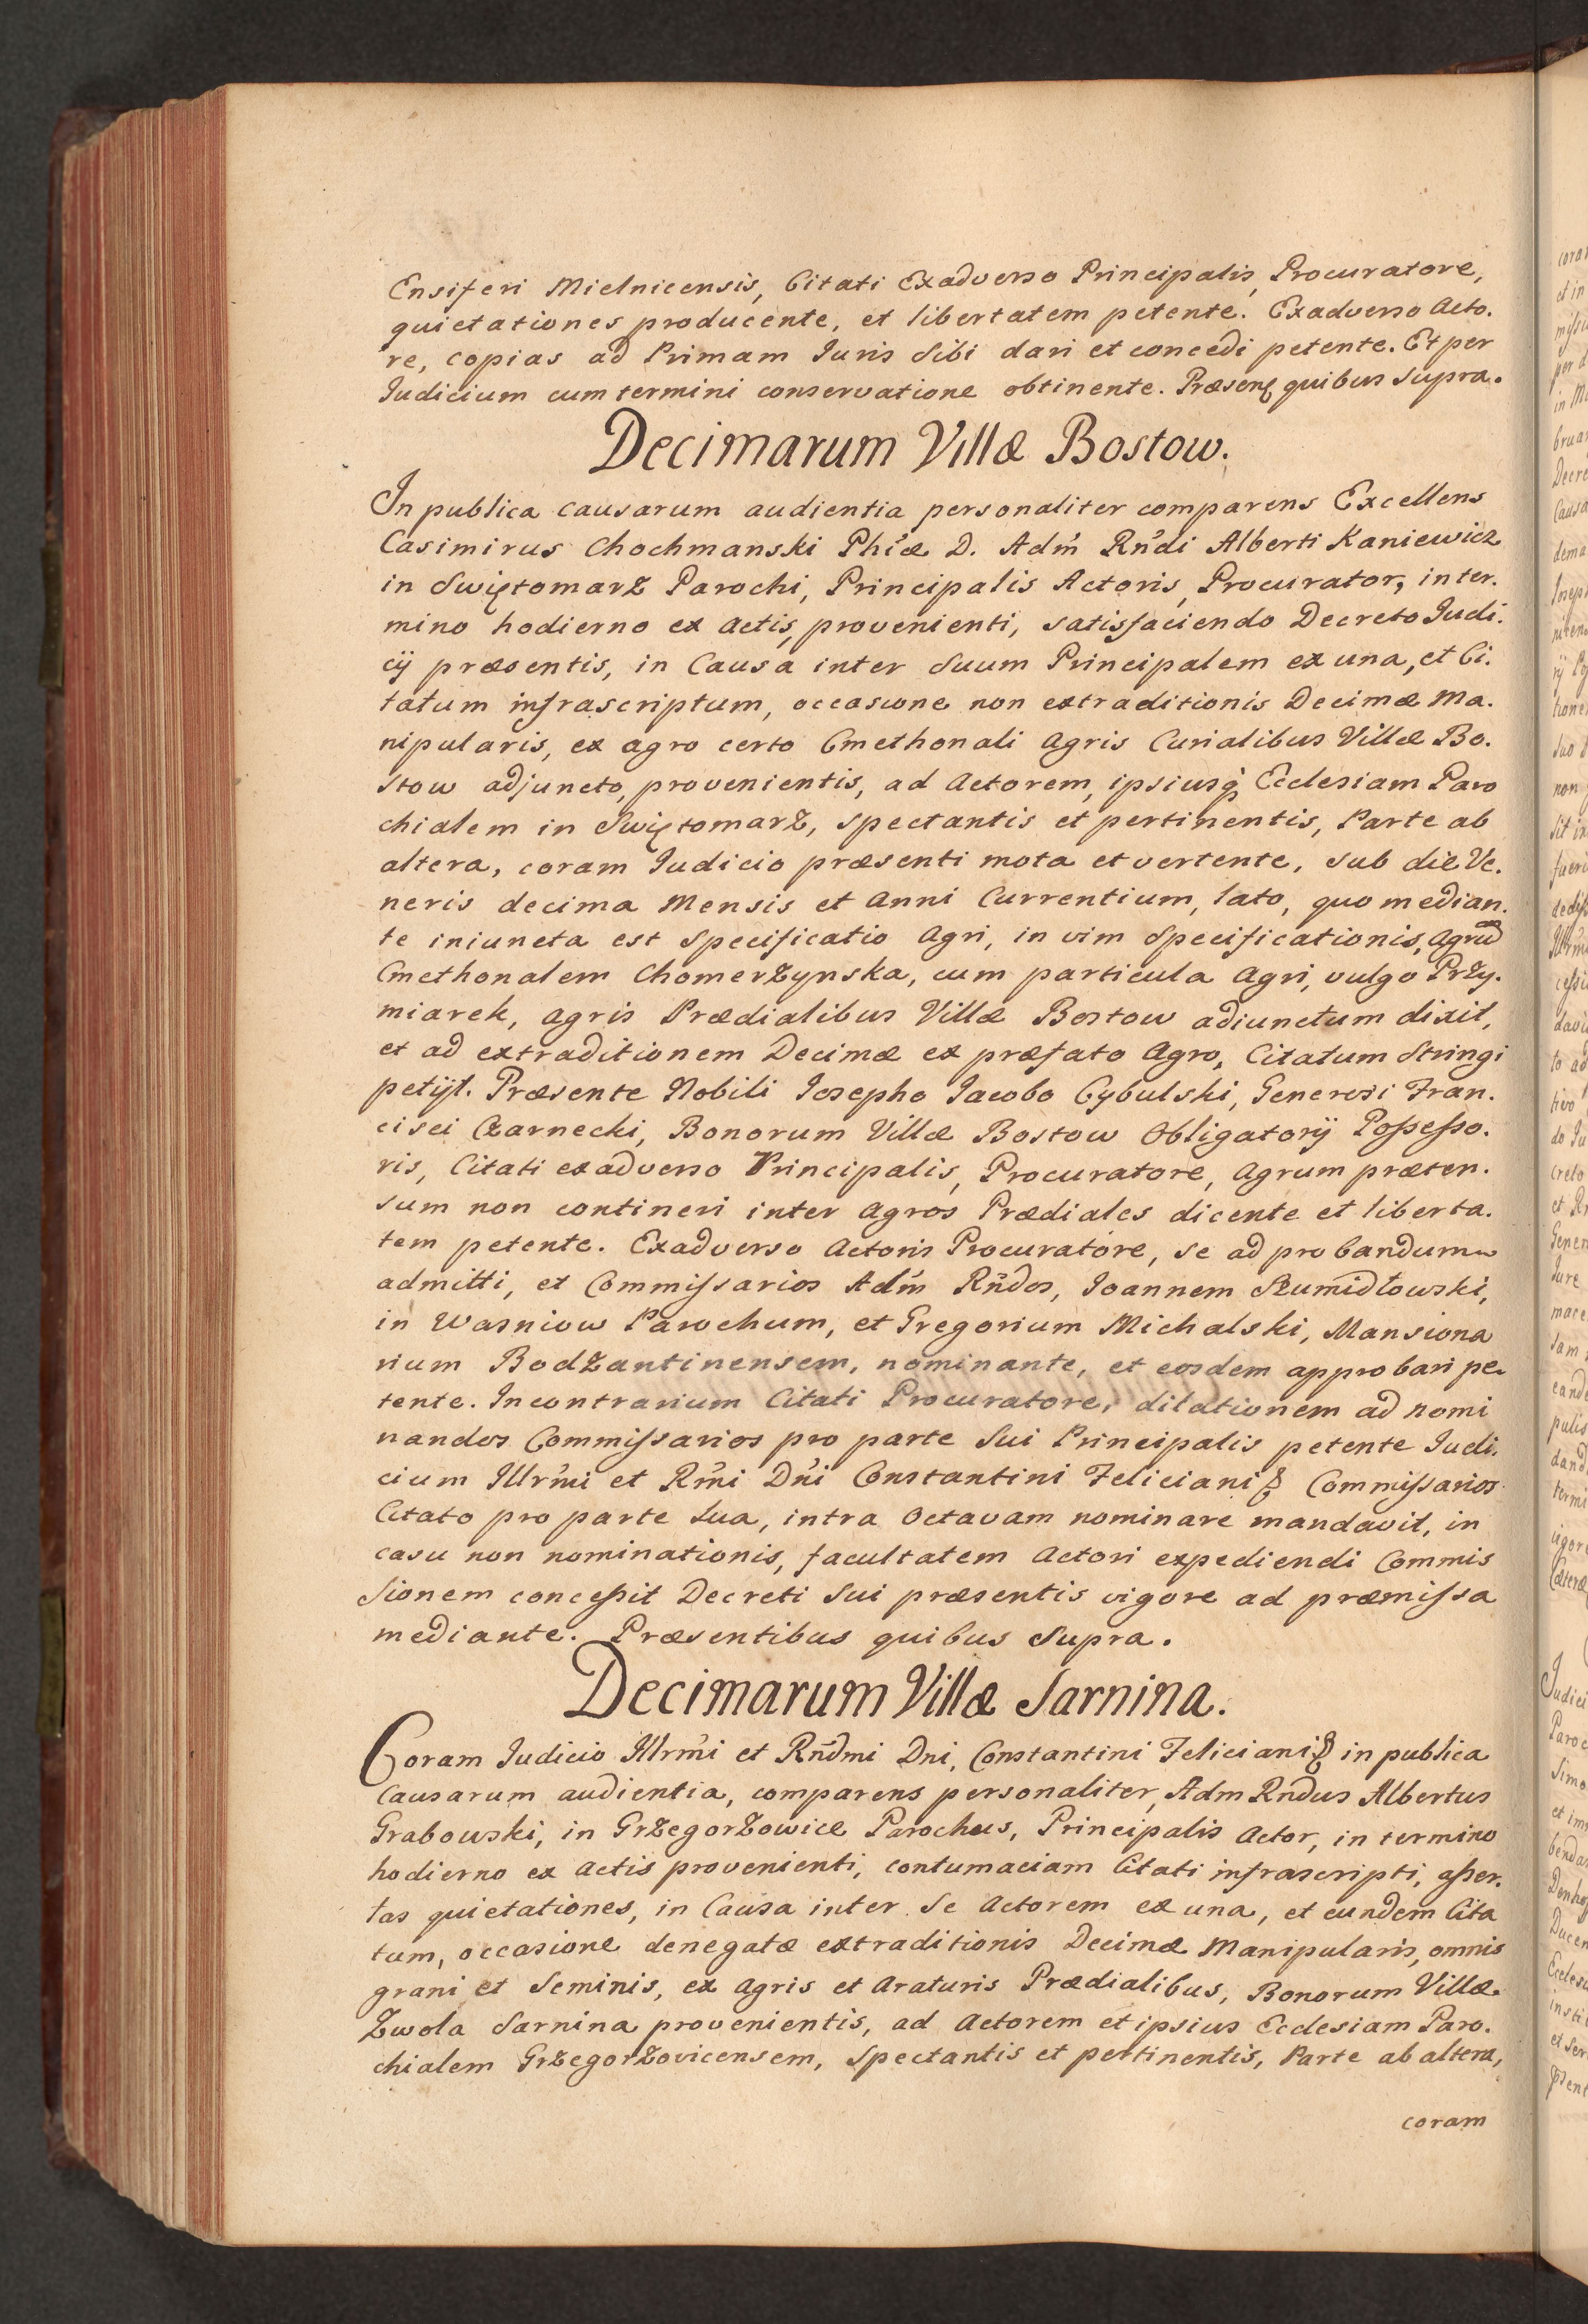 Ensiferi Mielnicensis, Citati Exadverso Principalis, Procuratore,
quietationes producente, et libertatem petente. Exadverso Acto.
re, copias ad Primam Iuris Sibi dari et concedi petente. Et per
Iudicium cum termini conservatione obtinente. Præsent quibus Supra.
Decimarum Villæ Bostow.
In publica causarum audientia personaliter comparens Excellens
Casimirus Chochmanski Phiæ D. Adm Rndi Alberti Kaniewicz
in Swiętomarz Parochi, Principalis Actoris, Procurator, in ter.
mino hodierno ex Actis, provenienti, satisfaciendo Decreto Iudi.
cij præsentis, in Causa inter Suum Principalem ex una, et Ci.
tatum infrascriptum, occasione non extraditionis Decimæ Ma.
nipularis, ex agro certo Cmethonali Agris Curialibus Villæ Bo.
stow adjuncto, provenientis, ad Actorem, ipsiusq Ecclesiam Paro
chialem in Swiętomarz, spectantis et pertinentis, Parte ab
altera, coram Iudicio præsenti mota et vertente, sub die Ve.
neris decima Mensis et Anni Currentium, lato, quo median.
te iniuncta est Specificatio Agri, in vim Specificationis, Agrũ
Cmethonalem Chomerzynska, cum particula Agri, vulgo Przy.
miarek, agris Prædialibus Villæ Bostow adiunctum dixit,
et ad extraditionem Decimæ ex præfato Agro, Citatum Stringi
petijt. Præsente Nobili Iosepho Iacobo Cybulski, Generosi Fran.
cisci Czarnecki, Bonorum Villæ Bostow Obligatorij Possesso.
ris, Citati exadverso Principalis, Procuratore, Agrum præten.
sum non contineri inter Agros Prædiales dicente et liberta.
tem petente. Exadverso Actoris Procuratore, se ad probandum
admitti, et Commissarios Adm Rndos, Ioannem Szumidłowski,
in Wasniow Parochum, et Gregorium Michalski, Mansiona
rium Bodzantinensem, nominante, et eosdem approbari pe.
tente. In contrarium Citati Procuratore, dilationem ad nomi
nandos Commissarios pro parte Sui Principalis petente Iudi.
cium Illrmi et Rmi Dni Constantini Feliciani & Commissarios
Citato pro parte Sua, intra Octavam nominare mandavit, in
casu non nominationis, facultatem Actori expediendi Commis
sionem concessit Decreti Sui præsentis vigore ad præmissa
mediante. Præsentibus quibus Supra.
Decimarum Villæ Sarnina.
Coram Iudicio Illrmi et Rndmi Dni, Constantini Feliciani & in publica
Causarum audientia, comparens personaliter, Adm Rndus Albertus
Grabowski, in Grzegorzowice Parochus, Principalis Actor, in termino
hodierno ex Actis provenienti, contumaciam Citati infrascripti, asser.
tas quietationes, in Causa inter Se Actorem ex una, et eundem Cita
tum, occasione denegatæ extraditionis Decimæ Manipularis, omnis
grani et Seminis, ex Agris et Araturis Prædialibus, Bonorum Villæ
Zwola Sarnina provenientis, ad Actorem et ipsius Ecclesiam Paro.
chialem Grzegorzovicensem, Spectantis et pertinentis, Parte ab altera,
coram